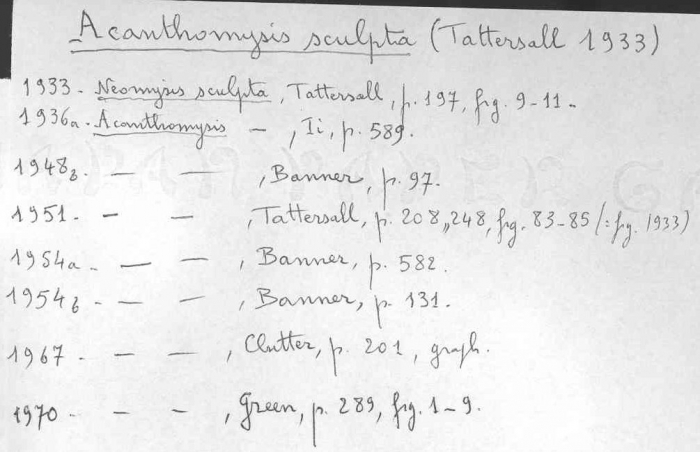 Acanthomysis sculpta (Tattersall 1933)
1933 - Neomysis sculpta, Tattersall, p. 197, fig. 9-11 -
1936a - Acanthomysis — , Ii, p. 589.
1948b. — — , Banner, p. 97.
1951. — — , Tattersall, p. 208, 248, fig. 83-85 (= fig. 1933)
1954a - — — , Banner, p. 582.
1954b - — — , Banner, p. 131.
1967 - — — , Clutter, p. 201, graph.
1970 - — — , Green, p. 289, fig. 1-9.